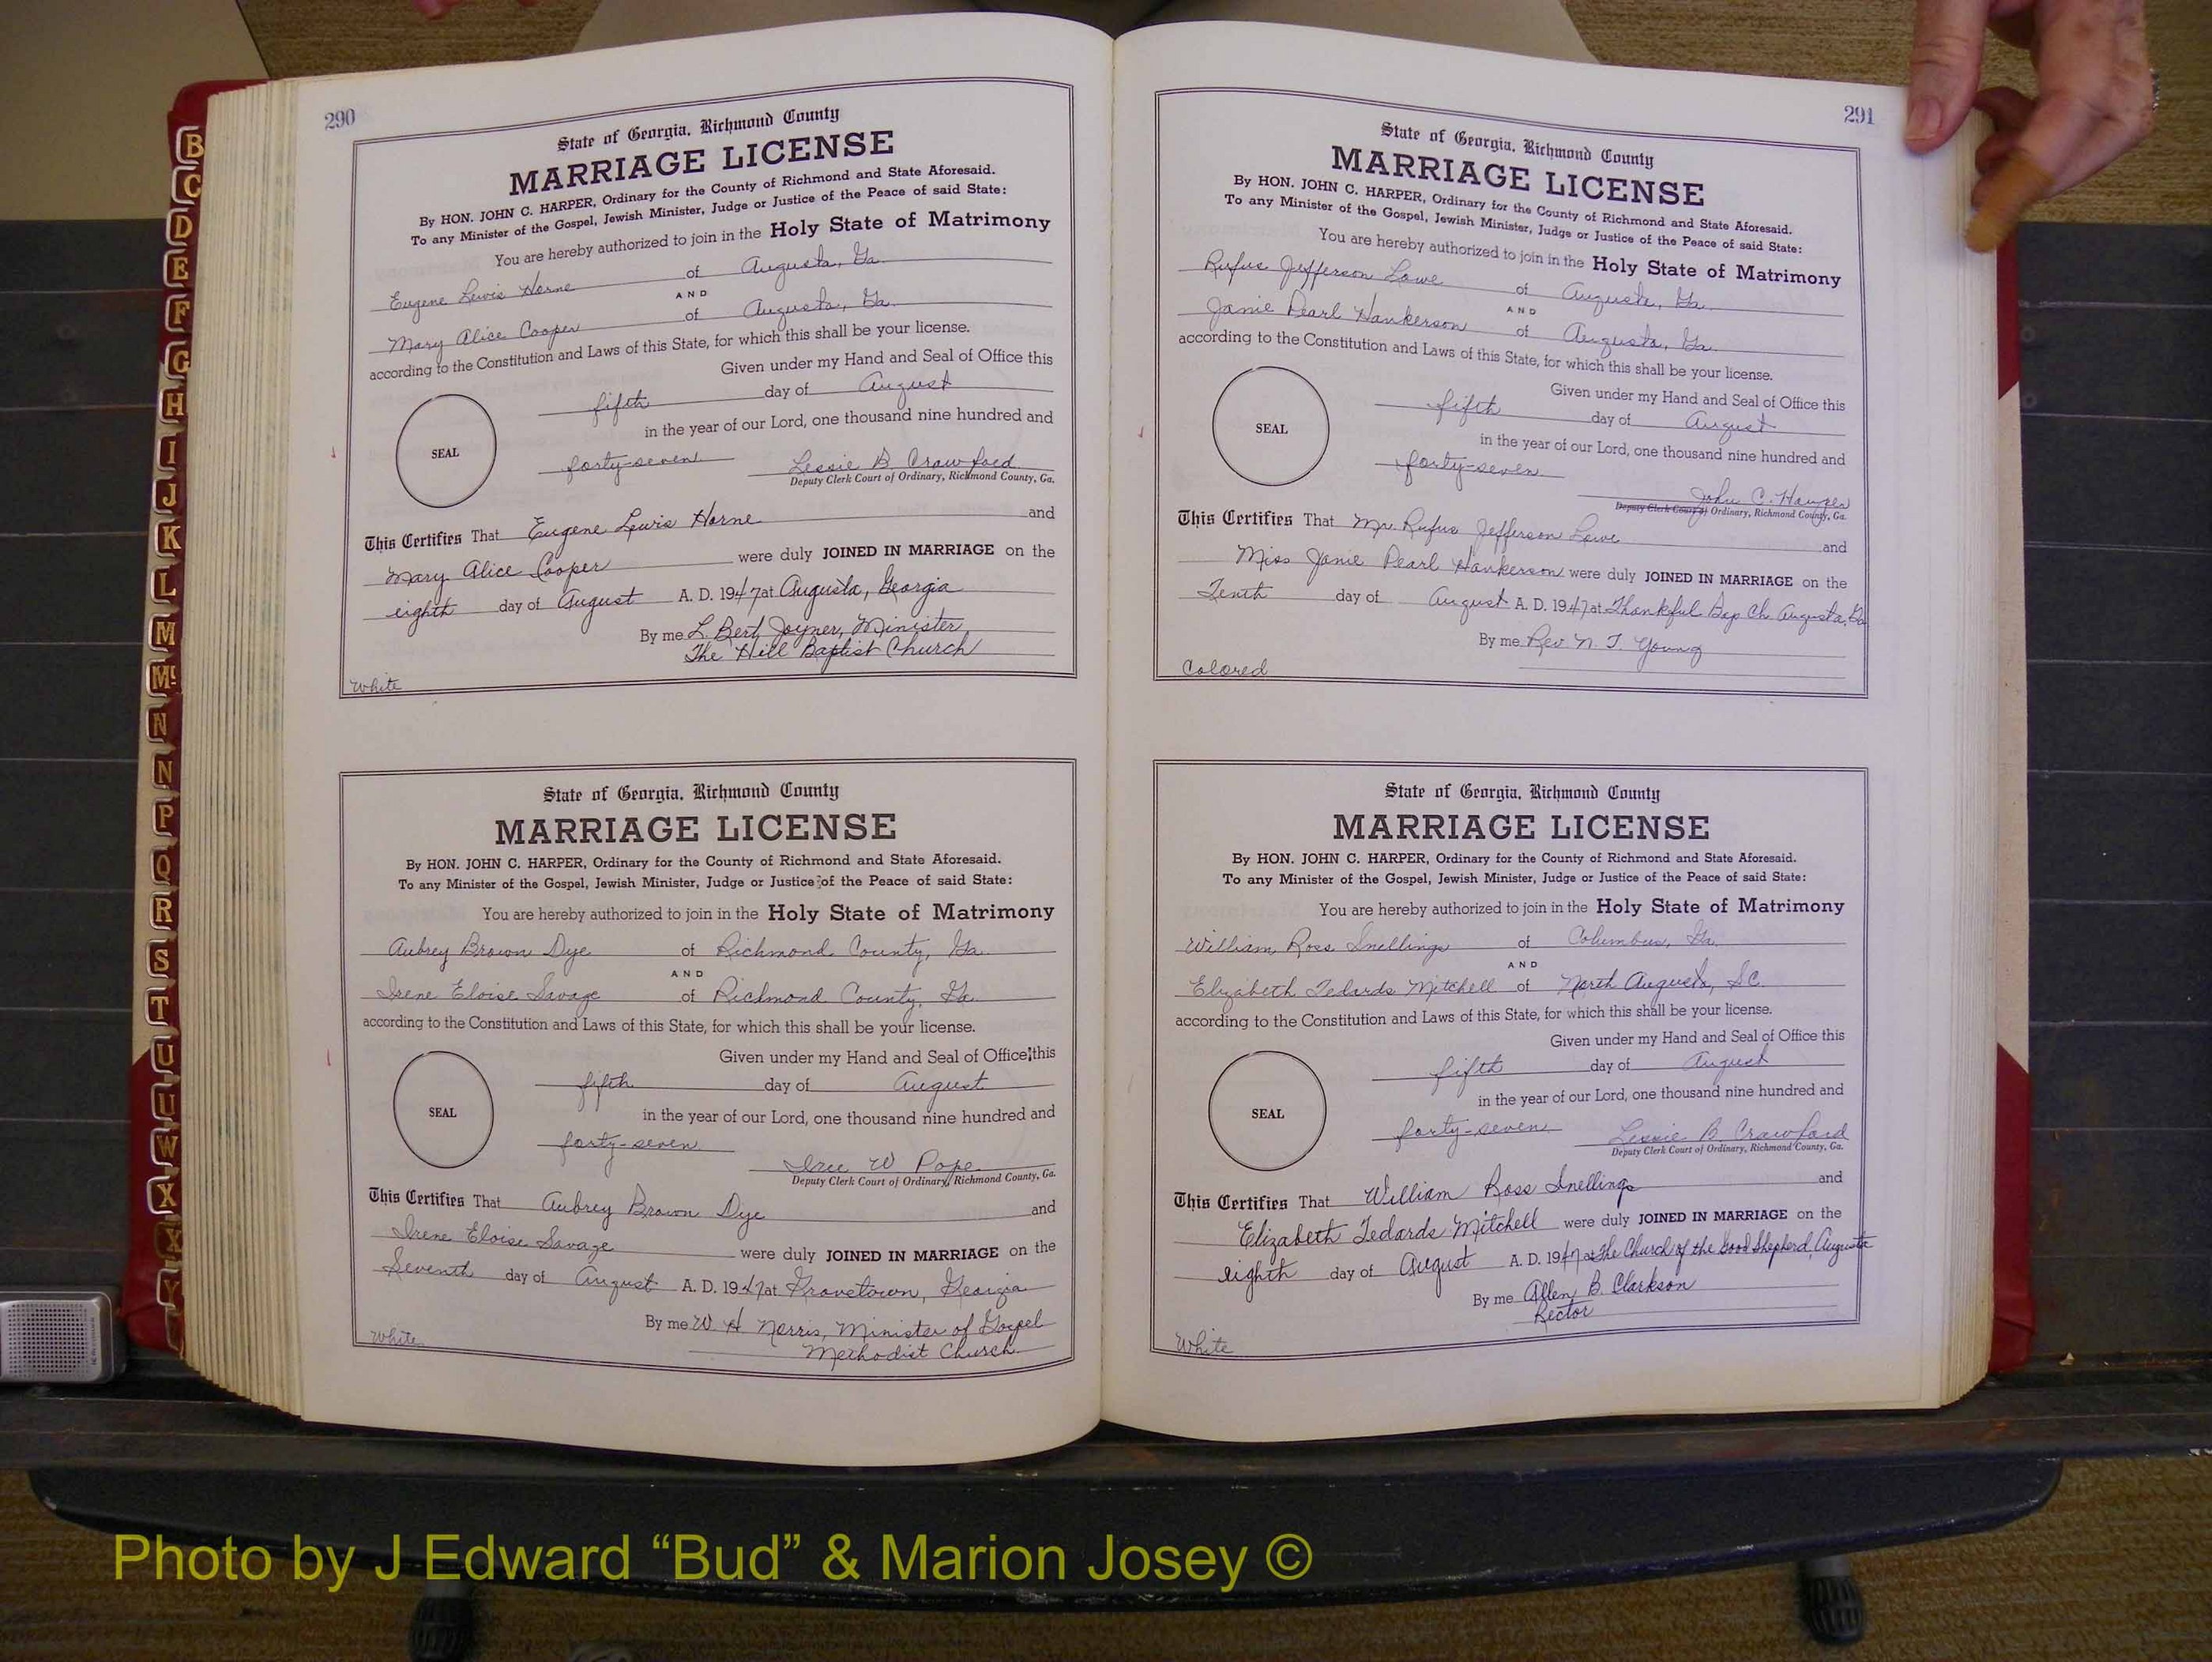 B
C
D
E
F
G
H
I
J
K
L
M
Mc
N
N
P
Q
R
S
T
U
U
W
X
X
Y
290
State of Georgia, Richmond County
MARRIAGE LICENSE
By HON. JOHN C. HARPER, Ordinary for the County of Richmond and State Aforesaid.
To any Minister of the Gospel, Jewish Minister, Judge or Justice of the Peace of said State:
You are hereby authorized to join in the Holy State of Matrimony
Eugene Lewis Horne of Augusta, Ga.
AND
Mary Alice Cooper of Augusta, Ga.
according to the Constitution and Laws of this State, for which this shall be your license.
Given under my Hand and Seal of Office this
fifth day of August
in the year of our Lord, one thousand nine hundred and
SEAL
forty-seven Lessie B Crawford
Deputy Clerk Court of Ordinary, Richmond County, Ga.
This Certifies That Eugene Lewis Horne and
Mary Alice Cooper were duly JOINED IN MARRIAGE on the
eighth day of August A. D. 1947 at Augusta, Georgia
By me L. Bert Joyner, Minister
The Hill Baptist Church
White
State of Georgia, Richmond County
MARRIAGE LICENSE
By HON. JOHN C. HARPER, Ordinary for the County of Richmond and State Aforesaid.
To any Minister of the Gospel, Jewish Minister, Judge or Justice of the Peace of said State:
You are hereby authorized to join in the Holy State of Matrimony
Aubrey Brown Dye of Richmond County, Ga.
AND
Irene Eloise Savage of Richmond County, Ga.
according to the Constitution and Laws of this State, for which this shall be your license.
Given under my Hand and Seal of Office this
fifth day of August
in the year of our Lord, one thousand nine hundred and
SEAL
forty-seven W. Pope
Deputy Clerk Court of Ordinary, Richmond County, Ga.
This Certifies That Aubrey Brown Dye and
Irene Eloise Savage were duly JOINED IN MARRIAGE on the
Seventh day of August A. D. 1947 at Grovetown, Georgia
By me W. H. Norris, Minister of Gospel
Methodist Church
White
291
State of Georgia, Richmond County
MARRIAGE LICENSE
By HON. JOHN C. HARPER, Ordinary for the County of Richmond and State Aforesaid.
To any Minister of the Gospel, Jewish Minister, Judge or Justice of the Peace of said State:
You are hereby authorized to join in the Holy State of Matrimony
Rufus Jefferson Lowe of Augusta, Ga.
AND
Janie Pearl Hankerson of Augusta, Ga.
according to the Constitution and Laws of this State, for which this shall be your license.
Given under my Hand and Seal of Office this
fifth day of August
in the year of our Lord, one thousand nine hundred and
SEAL
forty-seven
John C. Harper
Deputy Clerk Court of Ordinary, Richmond County, Ga.
This Certifies That Mr. Rufus Jefferson Lowe and
Miss Janie Pearl Hankerson were duly JOINED IN MARRIAGE on the
Tenth day of August A. D. 1947 at Thankful Bap Ch. Augusta, Ga
By me Rev N. T. Young
Colored
State of Georgia, Richmond County
MARRIAGE LICENSE
By HON. JOHN C. HARPER, Ordinary for the County of Richmond and State Aforesaid.
To any Minister of the Gospel, Jewish Minister, Judge or Justice of the Peace of said State:
You are hereby authorized to join in the Holy State of Matrimony
William Ross Snellings of Columbus, Ga.
AND
Elizabeth Tedards Mitchell of North Augusta, S.C.
according to the Constitution and Laws of this State, for which this shall be your license.
Given under my Hand and Seal of Office this
fifth day of August
in the year of our Lord, one thousand nine hundred and
SEAL
forty-seven Lessie B Crawford
Deputy Clerk Court of Ordinary, Richmond County, Ga.
This Certifies That William Ross Snellings and
Elizabeth Tedards Mitchell were duly JOINED IN MARRIAGE on the
eighth day of August A. D. 1947 at The Church of the Good Shepherd, Augusta
By me Allen B. Clarkson
Rector
White
Photo by J Edward “Bud” & Marion Josey ©